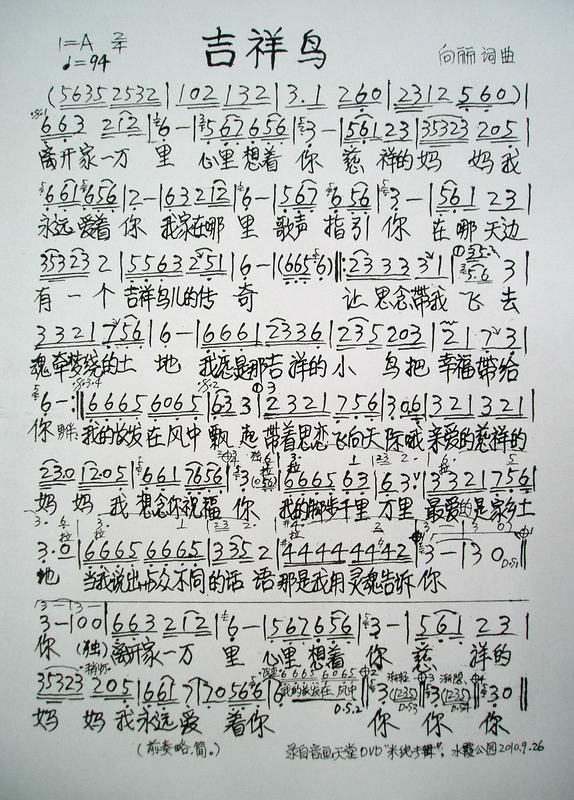 1=A 2/4 吉祥鸟 向丽 词曲
♩=94
(56352532|102 132|3.1 260|2312 560)|
663 212|6-|567656|3-|561 23|35323 205|
离开家一万 里 心里想着 你 慈 祥的妈 妈我
661 656|2-|632212|6-|567 656|3-|561 231|
永远爱着 你 我家在哪 里 歌声 指引 你 在哪 天边
35323 2|5563 2251|6-|(6656)||:23333 31| 3|
有 一 个 吉祥鸟儿的传 奇 让 思念带我 飞 去
3321 756|6-|6661|2336|235 203|21 73|
魂牵梦绕的土 地 我愿是那吉祥的小 鸟把 幸福带给
6-:||6665 6065|633|2321 756|3.06|321 321|
你 我的故发在风中 飘 起 带着思恋飞向天际哦亲爱的慈祥的
23.0|205|661 7656|3|6665 63|63|3321 756|
妈 妈 我 想念你祝福 你 我的脚步千里 万里 最爱的是家乡土
3.0|6665 6665|335 2|4444 4442|3-|30
地 当我说出与众不同的话 语那是我用灵魂告诉 你
3-|00|663 212|6-|567656|3-|561 23|
你 (独)离开家一万 里 心里想着 你 慈 祥的
35323 205|661 7|705666|
我的故发在风中
妈 妈 我永远爱 着你 你 你 你
(前奏略.简。) 录自音画天堂DVD 水霞公园2010.9.26